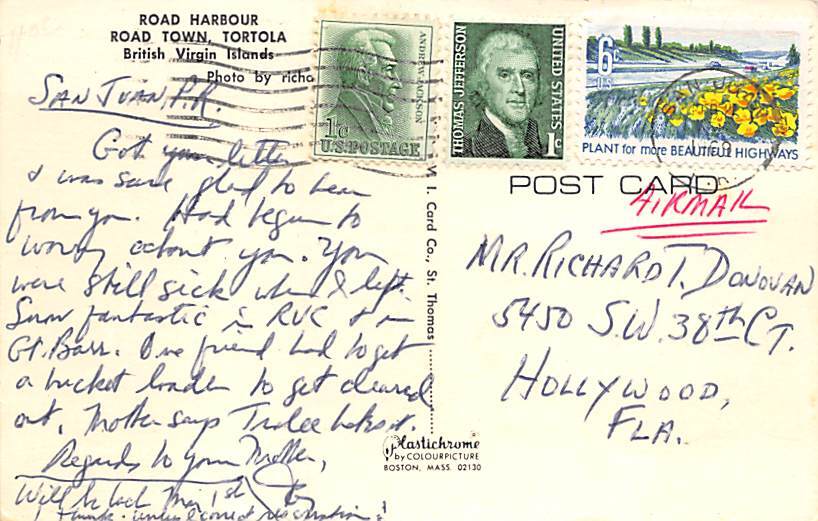 ROAD HARBOUR
ROAD TOWN, TORTOLA
British Virgin Islands
Photo by richa
SAN JUAN, P.R.
Got your letter
& was sure glad to hear
from you. Had begun to
worry about you. You
were still sick when I left.
Snow fantastic in RVC & in
Gt. Barr. One friend had to get
a bucket loader to get cleared
out. Mother says
Regards to your Mother,
Will be back Mar 1st
I think - unless correct
V I. Card Co., St. Thomas
Plastichrome
by COLOURPICTURE
BOSTON, MASS. 02130
ANDREW JACKSON
1c
U.S. POSTAGE
THOMAS JEFFERSON
UNITED STATES
1c
6c
U.S.
PLANT for more BEAUTIFUL HIGHWAYS
POST CARD
AIRMAIL
MR. RICHARD T. DONOVAN
5450 S.W. 38th CT.
HOLLYWOOD,
FLA.